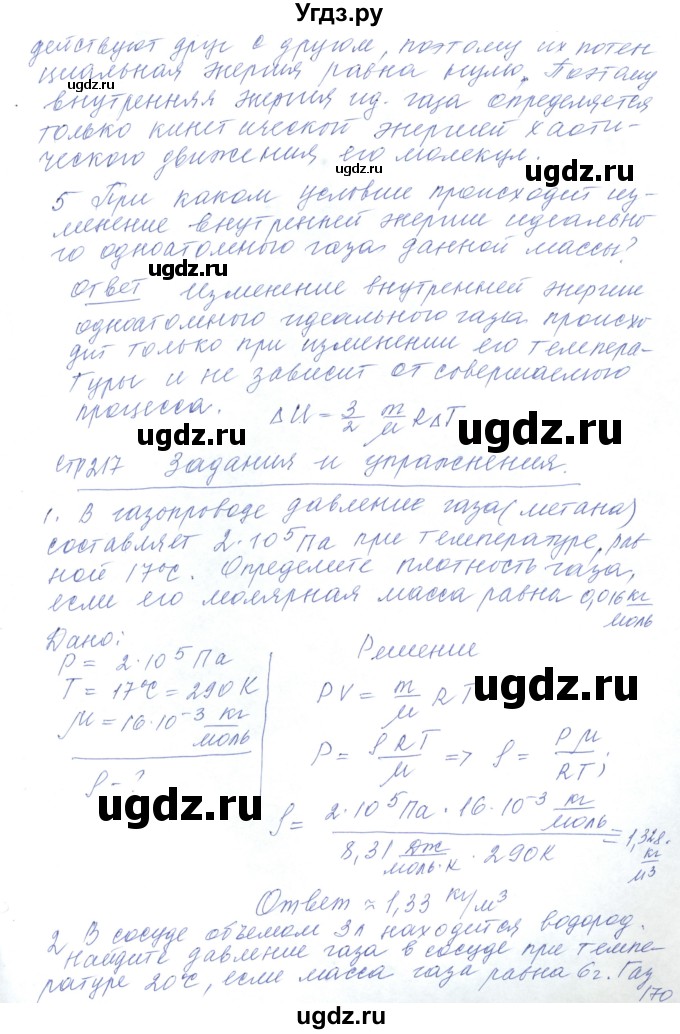 Угдз.ру
действуют друг с другом, поэтому их потен
циальная энергия равна нулю. Поэтому
внутренняя энергия ид. газа определяется
только кинетической энергией хаоти-
ческого движения его молекул.
5 При каком условие происходит из-
менение внутренней энергии идеально-
го одноатомного газа данной массы?
Ответ Изменение внутренней энергии
одноатомного идеального газа происхо-
дит только при изменении его темпера-
туры и не зависит от совершаемого
процесса. ΔU = 3/2 m/μ RΔT
стр217 Задания и упражнения.
1. В газопроводе давление газа (метана)
составляет 2·10⁵ Па при температуре, рав-
ной 17°С. Определите плотность газа,
если его молярная масса равна 0,016 кг/моль
Дано:
P = 2·10⁵ Па
T = 17°C = 290 K
μ = 16·10⁻³ кг/моль
ρ - ?
Решение
PV = m/μ RT
P = ρRT/μ => ρ = Pμ/RT;
ρ = 2·10⁵ Па · 16·10⁻³ кг/моль / 8,31 Дж/моль·К · 290К = 1,328 кг/м³
Ответ ≈ 1,33 кг/м³
2 В сосуде объемом 3л находится водород.
Найдите давление газа в сосуде при темпе-
ратуре 20°С, если масса газа равна 6г. Газ
170
ugdz.ru
ugdz.ru
ugdz.ru
ugdz.ru
ugdz.ru
ugdz.ru
ugdz.ru
ugdz.ru
ugdz.ru
ugdz.ru
ugdz.ru
ugdz.ru
ugdz.ru
ugdz.ru